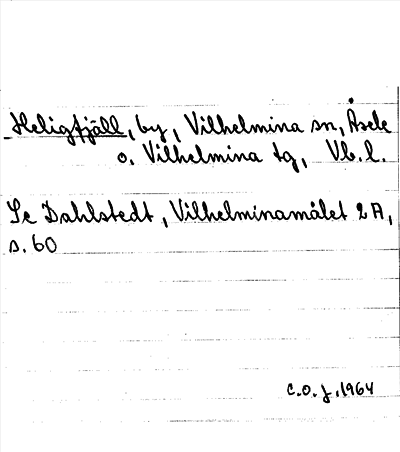 Heligfjäll, by, Vilhelmina sn, Åsele
o. Vilhelmina tg, Vb. l.
Se Dahlstedt, Vilhelminamålet 2 A,
s. 60
C.O.J. 1964